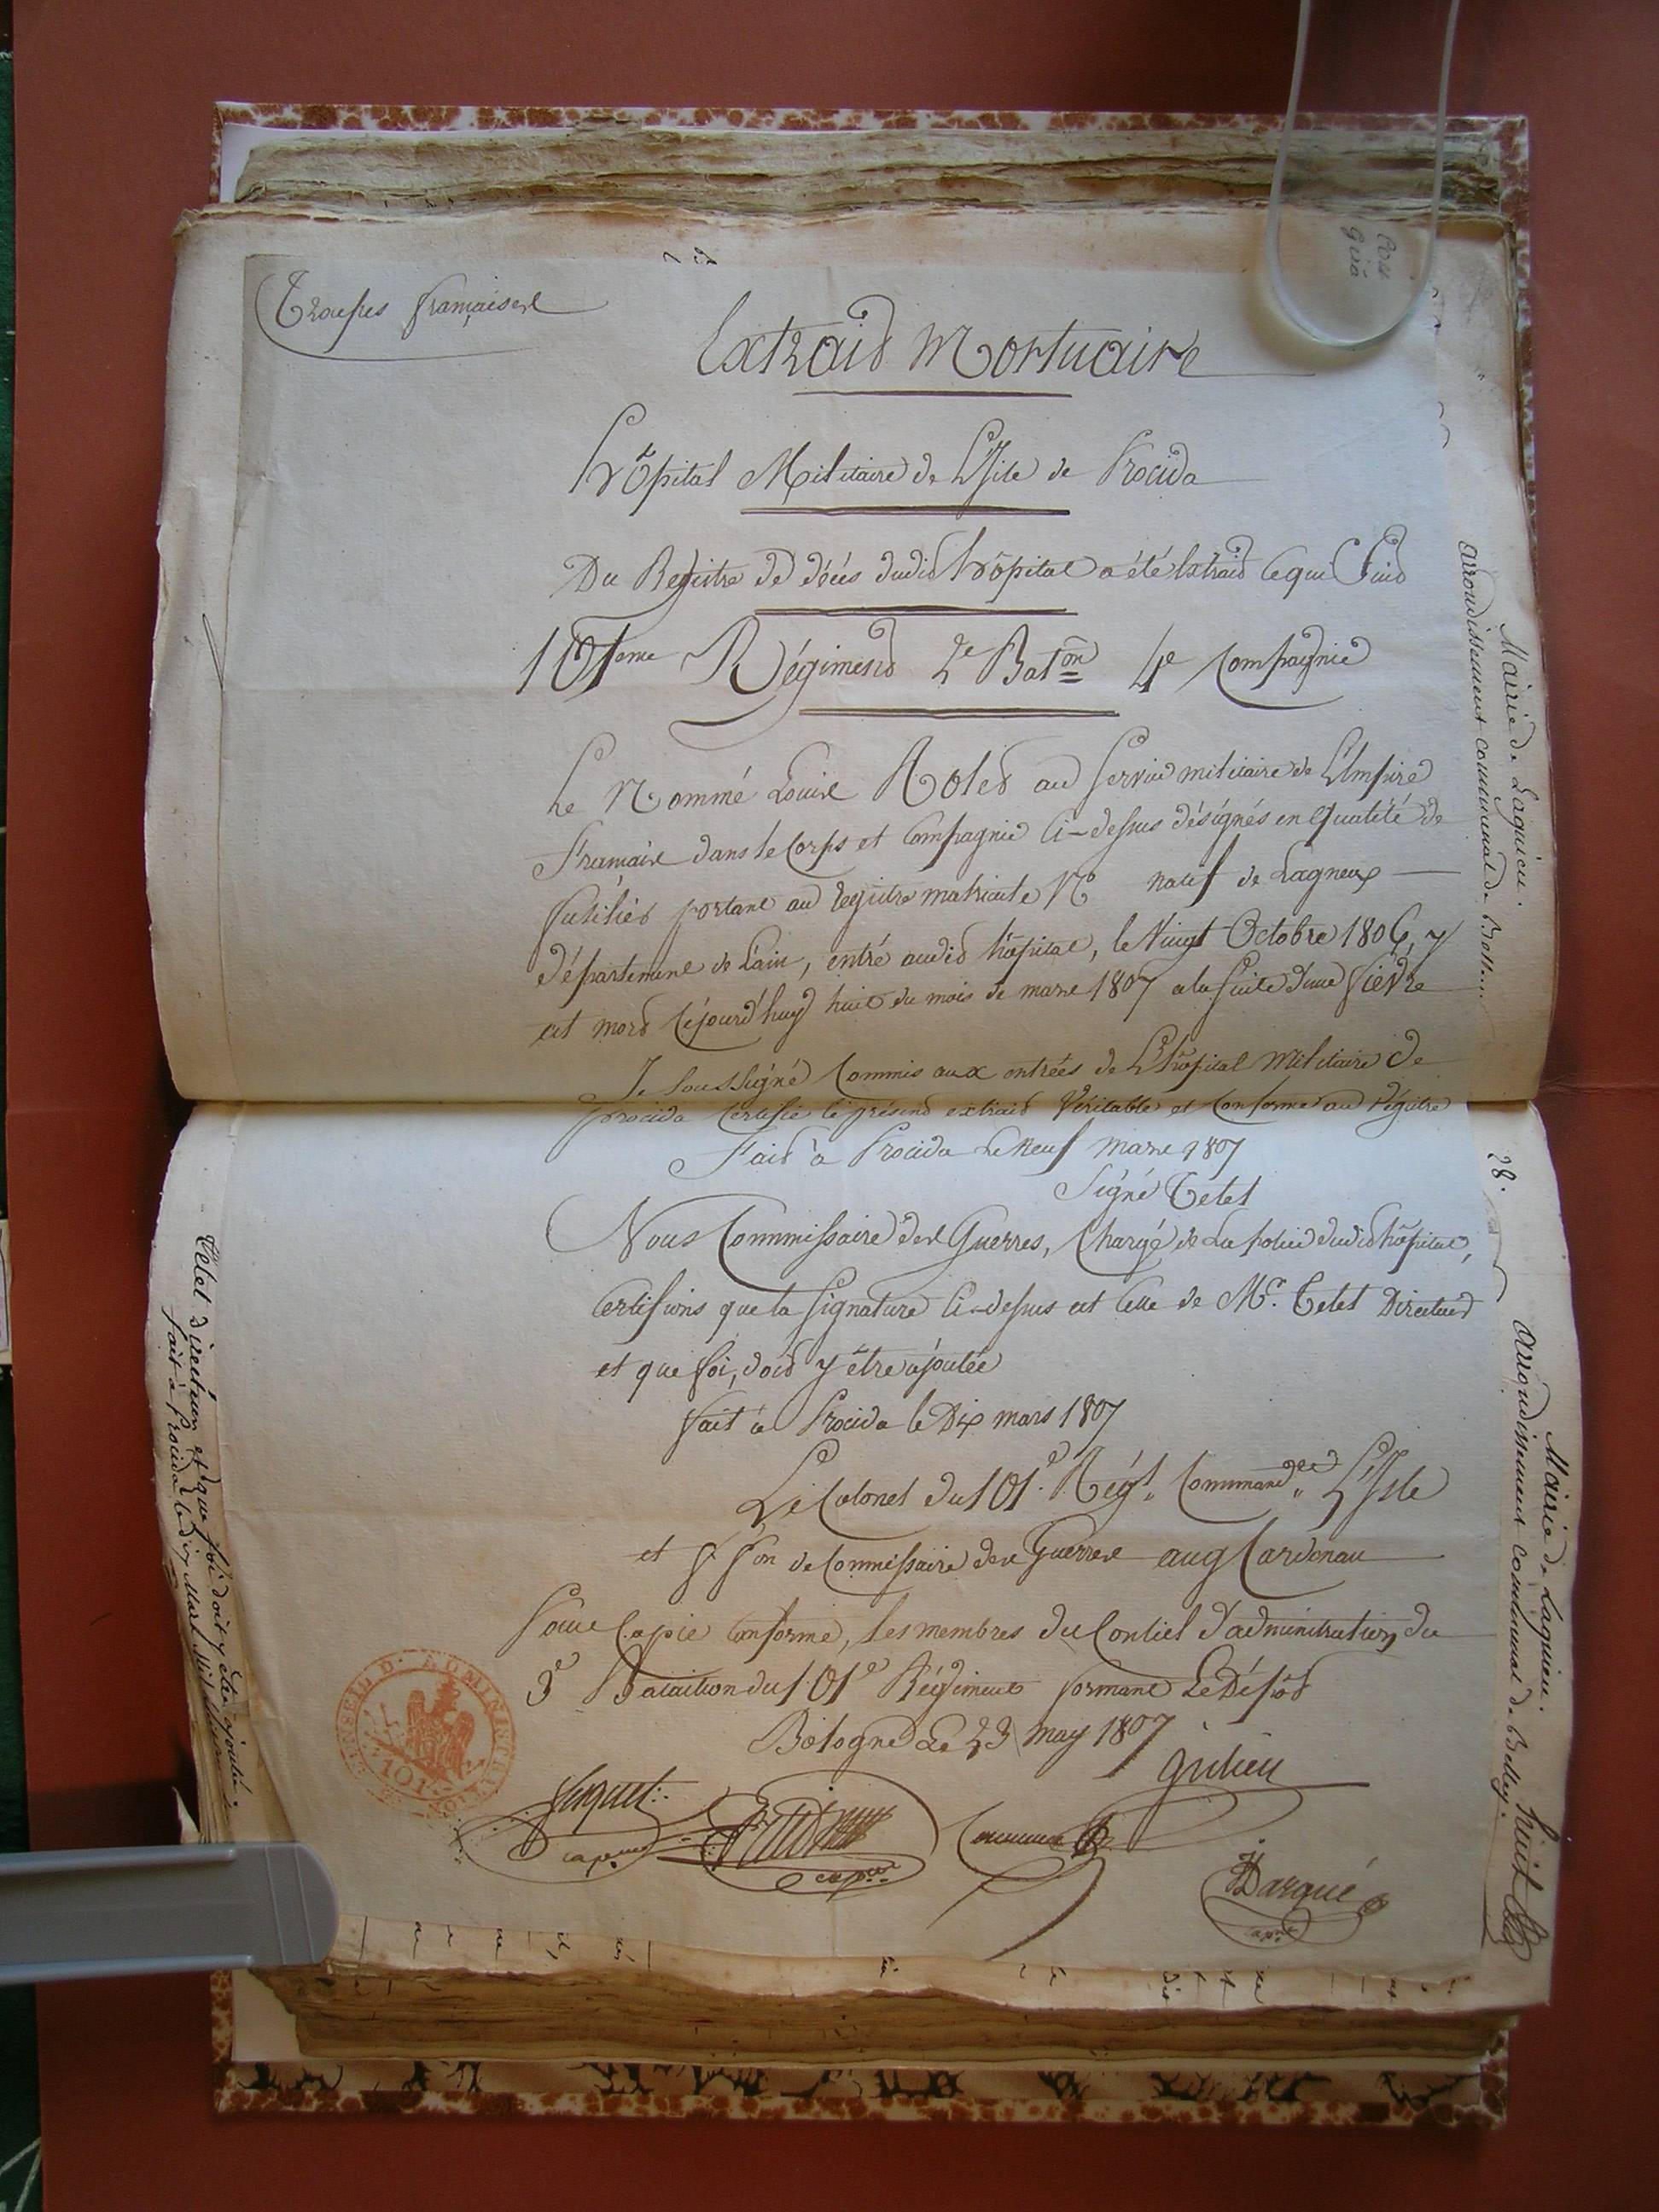 Troupes françaises
Extrait Mortuaire
hôpital Militaire de L'Isle de Procida
Du Registre de décés dudit hôpital a été Extrait ce qui Suit
101eme Régiment 2e Baton 4e Compagnie
Le Nommé Louis Rolet au Service militaire de L'Empire
Français dans le Corps et Compagnie Ci-dessus désignés en qualité de
fusilier portant au registre matricule No natif de Lagneux
département de L'ain, entré audit hôpital, le Vingt Octobre 1806, y
est mort Cejourd'huy huit du mois de mars 1807 a la Suite d'une fièvre
Je Soussigné Commis aux entrées de L'hôpital Militaire de
procida Certifie le présent extrait Véritable et Conforme au Régitre
Fait à Procida Le Neuf Mars 1807
Signé Télet
Nous Commissaire des Guerres, Chargé de La police dudit hôpital,
Certifions que la Signature Ci-dessus est Celle de Mr. Telet Directeur
et que foi, doit y être ajoutée
fait à Procida le Dix mars 1807
Le Colonel du 101e. Régt. Commandt. L'Isle
et f fon de Commissaire des Guerres aug Cardenau
Pour Copie Conforme, Les membres du Conseil d'administration du
3e Bataillon du 101e Régiment formant Le Dépôt
Bologne Le 23 May 1807
Julien
101
Darqué
28.
Mairie de Lagnieu.
arrondissement communal de
Mairie de Lagnieu.
arrondissement communal de Belley.
huit
Télet directeur et que foi doit y être ajoutée.
fait à Procida le dix Mars